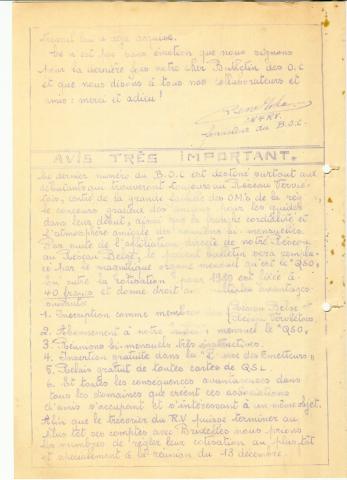 lequel lui a déjà acquise.
Ce n'est pas sans émotion que nous signons
pour la dernière fois notre cher Bulletin des O.C
et que nous disons à tous nos collaborateurs et
amis: merci et adieu!
du B.O.C.
AVIS TRÈS IMPORTANT.
Ce dernier numéro du B.O.C est destiné surtout aux
débutants qui trouveront toujours au Réseau Vervié-
tois, centre de la grande famille des OM's de la rég
le concours gratuit des pour les guider
dans leur début, ainsi que la franche cordialité et
l'atmosphère amicale des réunions bi-mensuelles.
Par suite de l'affiliation directe de notre Réseau
au Réseau Belge, le présent bulletin sera rempla-
cé par le magnifique organe mensuel qu'est le "QSO".
En outre la cotisation pour est fixée à
40 francs et donne droit aux avantages
suivants:
1. Inscription comme membre des Réseau Belge
Réseau Verviétois.
2. Abonnement à notre mensuel le "QSO,
3. Réunions bi-mensuels très instructives.
4. Insertion gratuite dans la des Emetteurs"
5. Relais gratuit de toutes cartes de QSL.
6. Et toutes les conséquences avantageuses dans
tous les domaines que créent ces associations
d'amis s'occupant et s'intéressant à un même sujet.
Afin que le trésorier du R.V puisse terminer au
plus tôt ses comptes avec Bruxelles nous prions
les membres de régler leur cotisation au plus tôt
et spécialement à la réunion du 13 décembre.